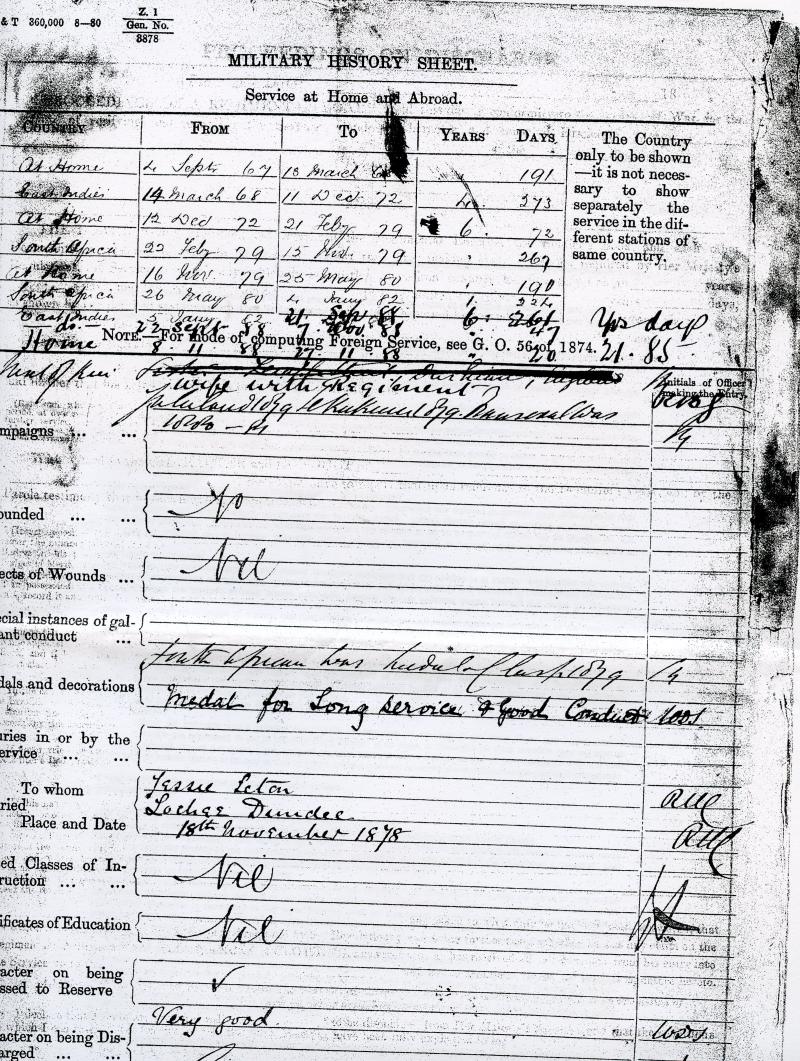 & T 360,000 8—80
Z. 1
Gen. No.
3878
MILITARY HISTORY SHEET.
Service at Home and Abroad.
COUNTRY FROM TO YEARS DAYS
At Home 4 Septr 67 13 March 191
East Indies 14 March 68 11 Decd 72 4 273
At Home 12 Decd 72 21 Feby 79 6 72
South Africa 22 Feby 79 15 Novr 79 267
At Home 16 Novr 79 25 May 80 190
South Africa 26 May 80 4 Jany 82 1 224
East Indies 5 Jany 82 21 Sepr 88 6 261
do 22 Sept 88 7 Nov. 88 47
Home 8. 11. 88 27. 11. 88 20
The Country
only to be shown
—it is not neces-
sary to show
separately the
service in the dif-
ferent stations of
same country.
Yrs days
21. 85
NOTE.—For mode of computing Foreign Service, see G. O. 56 of 1874.
Initials of Officer
making the Entry.
Next of Kin
Wife with Regiment
Zululand 1879 Sekukuni 1879 Transvaal War
mpaigns ... ... 1880 – 81
ounded ... ... No
ects of Wounds ... Nil
ecial instances of gal-
ant conduct ...
South African War Medal & Clasp 1879
dals and decorations
Medal for Long Service & Good Conduct
uries in or by the
ervice ... ...
To whom
ried
Place and Date
Jessie
Lochee Dundee
18th November 1878
ed Classes of In-
ruction ... ... Nil
ificates of Education Nil
acter on being
ssed to Reserve
Very good
acter on being Dis-
arged ... ...